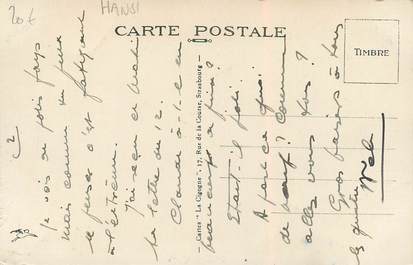 20€
HANSI
CARTE POSTALE
TIMBRE
Cartes "La Cigogne", 17, Rue de la Course, Strasbourg
2
Je vois de jolis pays
mais comme tu peux
le penser c'est fatigant
à l'extrême.
J'ai reçu ce matin
ta lettre du 12.
Claude a-t-elle eu
beaucoup de
Etait-il joli
A part ce qui
de neuf? Comment
allez vous tous?
Gros baisers à tous